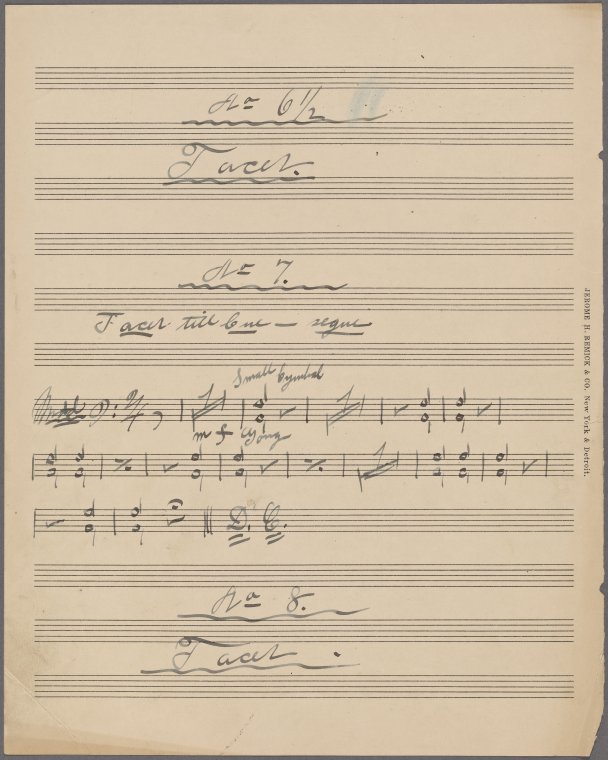 No 6 1/2
Tacet.
No 7.
Tacet till Cue — segue
Small Cymbal
2/4
mf Gong
D. C.
No 8.
Tacet.
JEROME H. REMICK & CO., New York & Detroit.